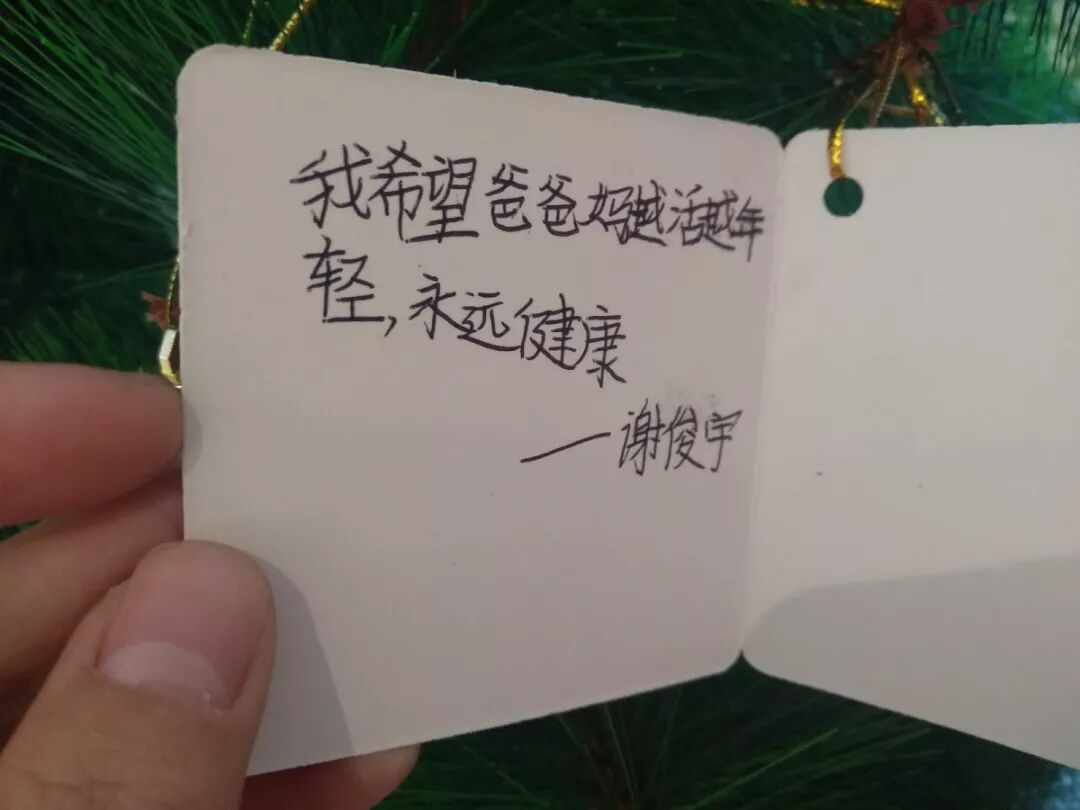 我希望爸爸妈越活越年
轻,永远健康
—谢俊宇